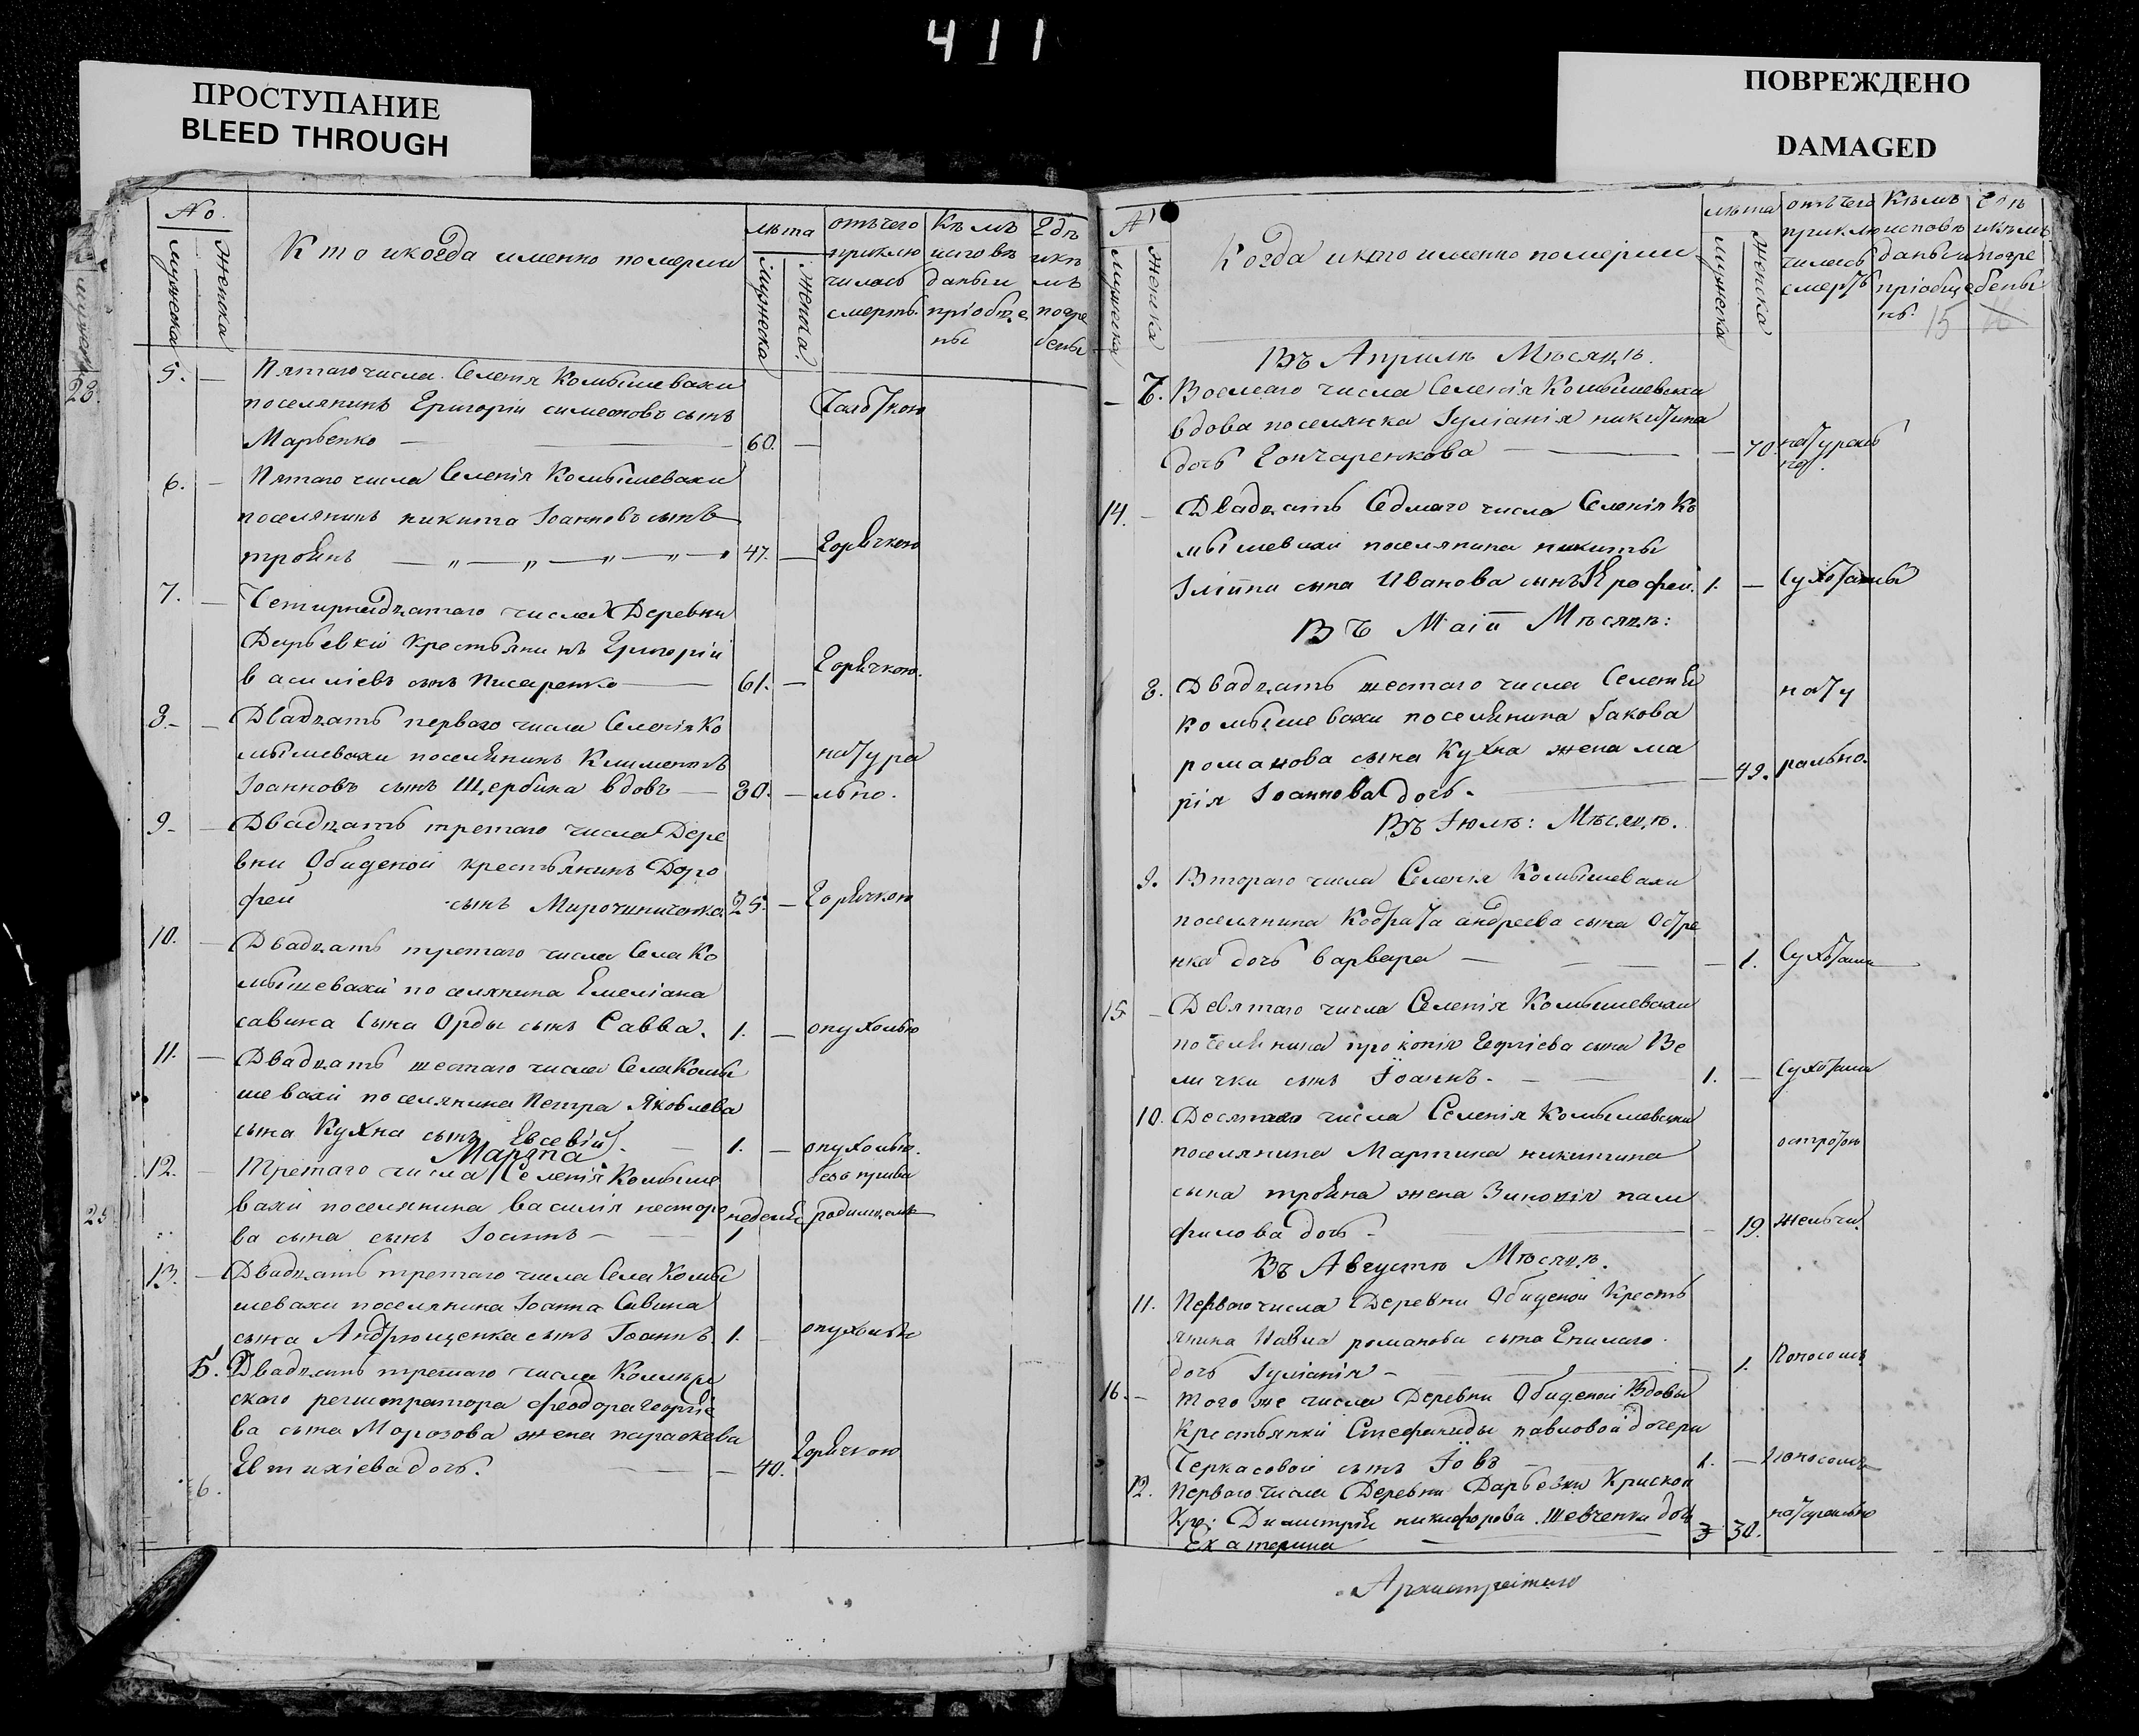 411
ПРОСТУПАНИЕ
BLEED THROUGH
ПОВРЕЖДЕНО
DAMAGED
No.
мужеска
женска
Кто и когда именно померли
лѣта
мужеска
женска
отъ чего
приклю
чилась
смерть.
Кѣмъ
исповѣ
даны и
пріобще
ны
Гдѣ
и кѣ
мъ
погре
бены
5. — Пятаго числа Селенія Комышевахи
поселянинъ Григорій симеоновъ сынъ
Марченко — 60. —
6. — Пятаго числа Селенія Комышевахи
поселянинъ никита Іоанновъ сынъ
троянъ — 47. — Горячкою
7. — Четырнадцатаго числа Деревни
Дарьевки крестьянинъ Григорій
василіевъ сынъ Писаренко — 61. — Горячкою.
8. — Двадцать перваго числа Селенія Ко
мышевахи поселянинъ Климентъ
Іоанновъ сынъ Щербина вдовъ — 80. — натура
льно.
9. — Двадцать третаго числа Дере
вни Обиденой крестьянинъ Доро
фей сынъ Мирошниченко 25. — Горячкою
10. — Двадцать третаго числа Села Ко
мышевахи поселянина Емеліана
савина сына Орды сынъ Савва. 1. — опухолью
11. — Двадцать шестаго числа Села Комы
шевахи поселянина Петра Яковлева
сына Кухна сынъ Евсевій. — 1. — опухолью.
Марта
12. — Третаго числа Селенія Комыше
вахи поселянина василія нестеро
ва сына сынъ Іоаннъ — недели 1 родимцемъ
13. — Двадцать третаго числа Села Комы
шевахи поселянина Іоанна Савина
сына Андрющенка сынъ Іоаннъ 1. — опухолью
5. Двадцать третаго числа Коллеж
скаго регистратора феодора Георгіе
ва сына Морозова жена параскева
Евтихіева дочь. — 40. Горячкою
6.
мужеска
женска
Когда и кто именно померли
лѣта
мужеска
женска
отъ чего
приклю
чилась
смерть
Кѣмъ
исповѣ
даны и
пріобще
ны.
Гдѣ
и кѣмъ
погре
бены
15
16
Въ Априлѣ Мѣсяцѣ.
— 7. Восмаго числа Селенія Комышевахи
вдова поселянка Іуліанія никитина
дочь Гончаренкова — 70. натураль
но.
14. — Двадцать Седмаго числа Селенія Ко
мышевахи поселянина никиты
сына Иванова сынъ Ерофей. 1. — Сухотами
Въ Маіи Мѣсяцѣ:
8. Двадцать шестаго числа Селенія
комышевахи поселянина Іакова
романова сына Кухна жена ма
рія Іоаннова дочь. — 49. нату
рально.
Въ Іюлѣ: Мѣсяцѣ.
9. Втораго числа Селенія Комышевахи
поселянина Кодрата андреева сына Остре
нка дочь варвара — 1. Сухотами
15 — Девятаго числа Селенія Комышевахи
поселянина прокопія Георгіева сына Ве
лички сынъ Іоаннъ. — 1. — Сухотами
10. Десятаго числа Селенія Комышевахи
поселянина Мартина никитина
сына трояна жена Зиновія пам
филова дочь — 19. острою
желчи.
Въ Августѣ Мѣсяцѣ.
11. Перваго числа Деревни Обиденой Кресть
янина Павла романова сына
дочь Іуліанія — 1. Поносомъ
16. — Того же числа Деревни Обиденой Вдовы
Крестьянки Стефаниды павловой дочери
Черкасовой сынъ Іовъ 1. — Поносомъ
12. Перваго числа Деревни Дарьевки
Кре: Димитрія никифорова Шевченка дочь
Екатерина 30. натурально